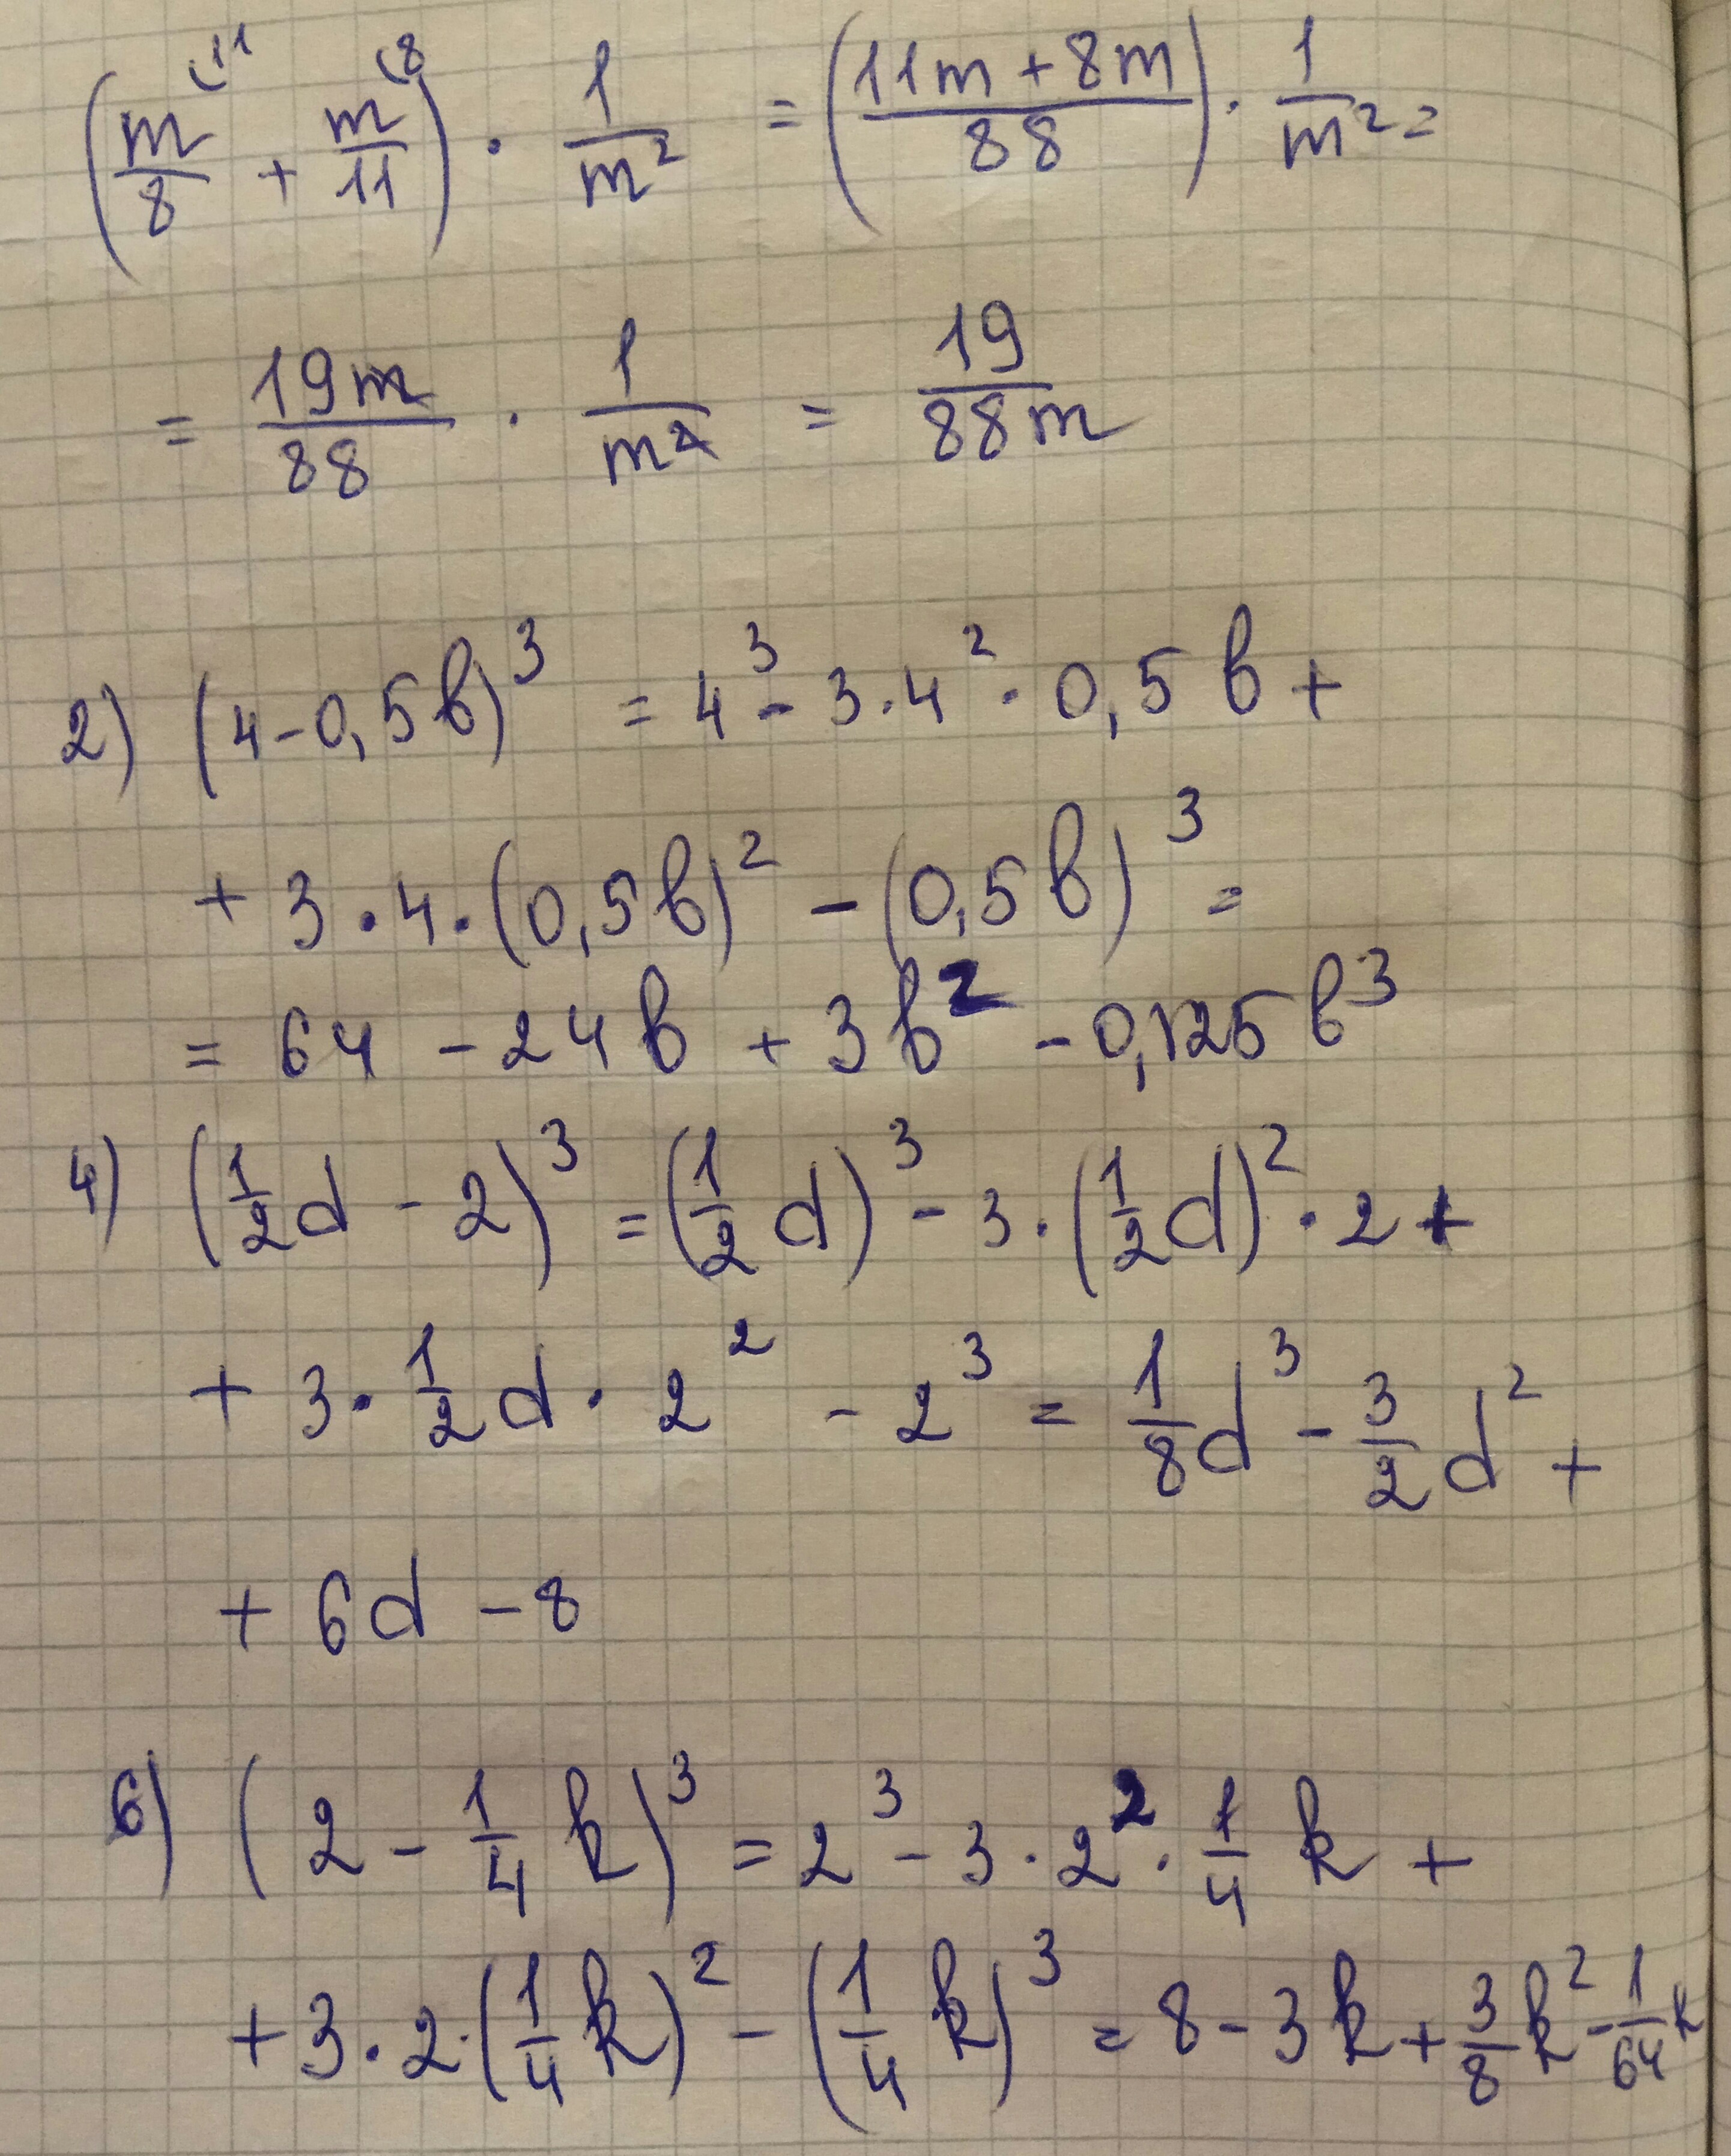 (m/8 ⁽¹¹ + m/11 ⁽⁸) · 1/m² = (11m + 8m / 88) · 1/m² =
= 19m/88 · 1/m² = 19/88m
2) (4-0,5b)³ = 4³ - 3·4² · 0,5b +
+ 3·4·(0,5b)² - (0,5b)³ =
= 64 - 24b + 3b² - 0,125b³
4) (1/2d - 2)³ = (1/2d)³ - 3·(1/2d)² · 2 +
+ 3·1/2d · 2² - 2³ = 1/8d³ - 3/2d² +
+ 6d - 8
6) (2 - 1/4k)³ = 2³ - 3·2² · 1/4k +
+ 3·2·(1/4k)² - (1/4k)³ = 8 - 3k + 3/8k² - 1/64k